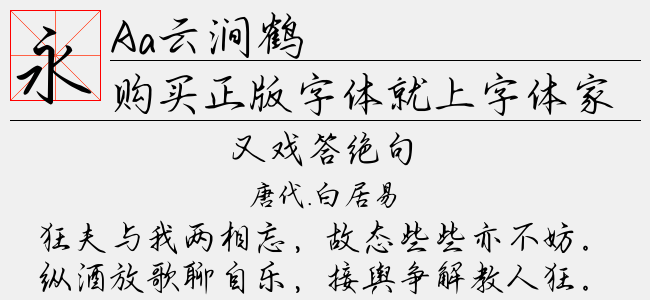 永
Aa云涧鹤
购买正版字体就上字体家
又戏答绝句
唐代.白居易
狂夫与我两相忘，故态些些亦不妨。
纵酒放歌聊自乐，接舆争解教人狂。